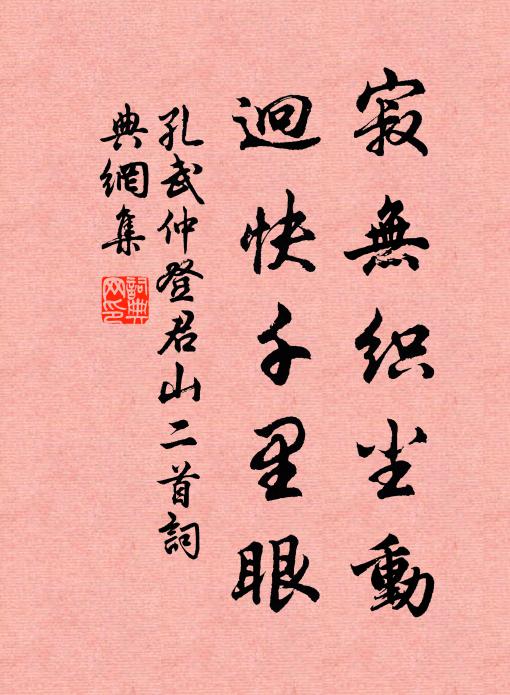 寂無织尘動
迥快千里眼
孔武仲登君山二首詞
典網集
詞典
网印